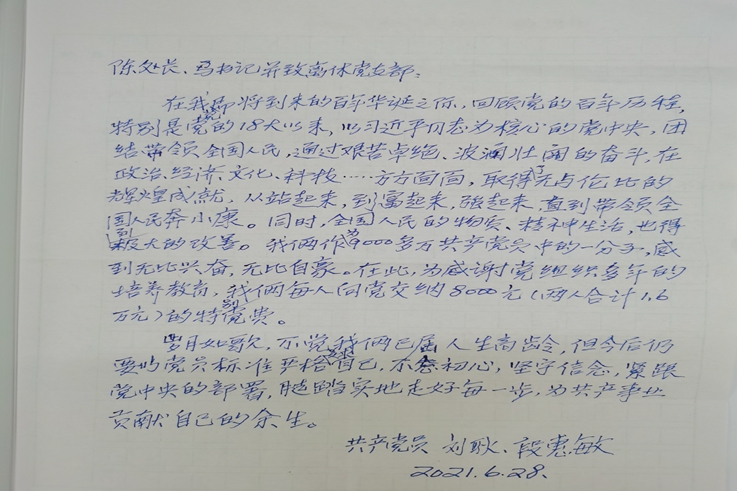 陈处长、马书记并致离休党支部:
在我党即将到来的百年华诞之际,回顾党的百年历程,
特别是党的18大以来,以习近平同志为核心的党中央,团
结带领全国人民,通过艰苦卓绝、波澜壮阔的奋斗,在
政治、经济、文化、科技……方方面面,取得了无与伦比的
辉煌成就,从站起来,到富起来,强起来,直到带领全
国人民奔小康。同时,全国人民的物质、精神生活,也得
到极大的改善。我俩作为9000多万共产党员中的一分子,感
到无比兴奋,无比自豪。在此,为感谢党组织多年的
培养教育,我俩每人向党交纳8000元(两人合计1.6
万元)的特别党费。
岁月如歌,不觉我俩已届人生高龄,但今后仍
要以党员标准严格要求自己,不忘初心,坚守信念,紧跟
党中央的部署,脚踏实地走好每一步,为共产事业
贡献自己的余生。
共产党员 刘耿、段惠敏
2021.6.28.